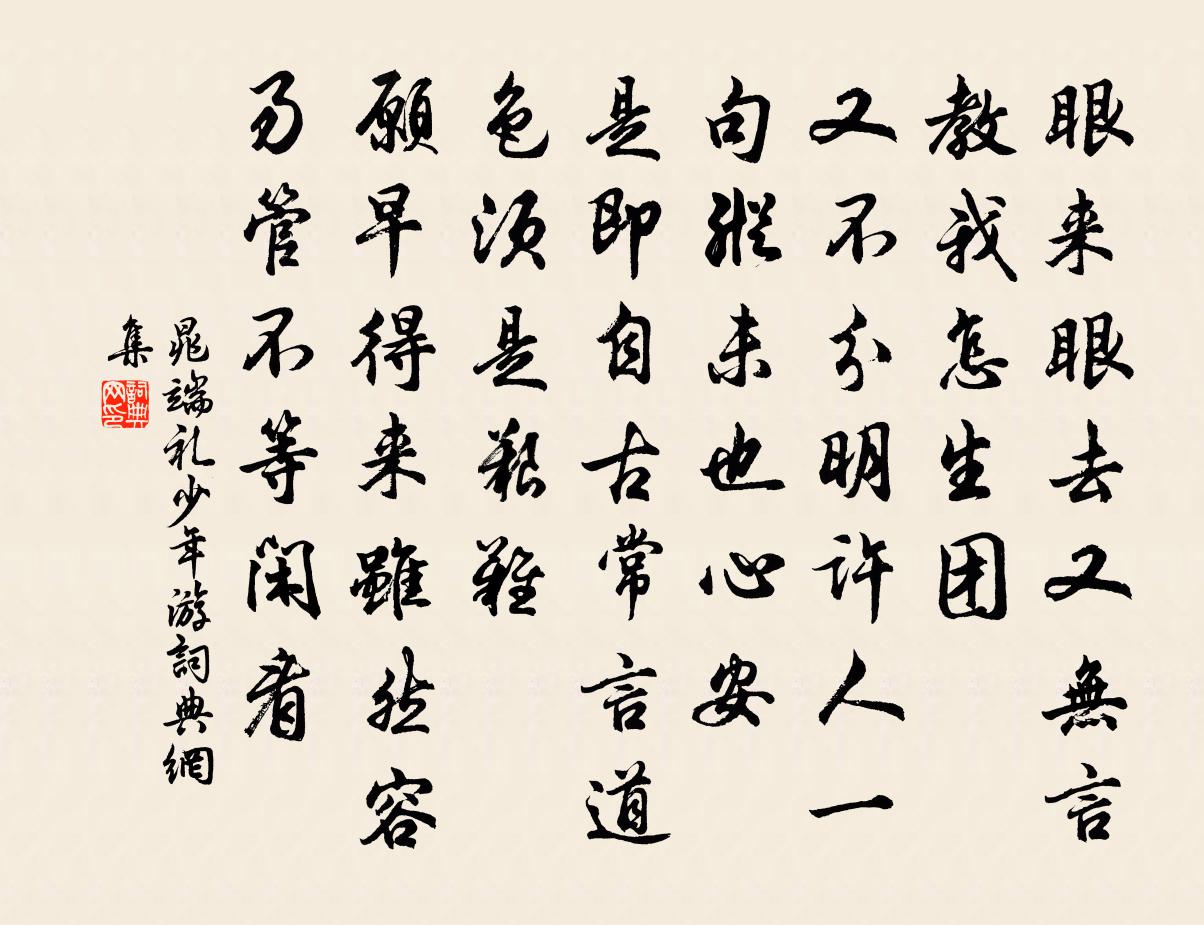 眼来眼去又無言
教我怎生团
又不分明许人一
句縱未也心安
是即自古常言道
色须是艱難
願早得来雖然容
易管不等閑看
晁端礼少年游詞典網
集
詞典网印